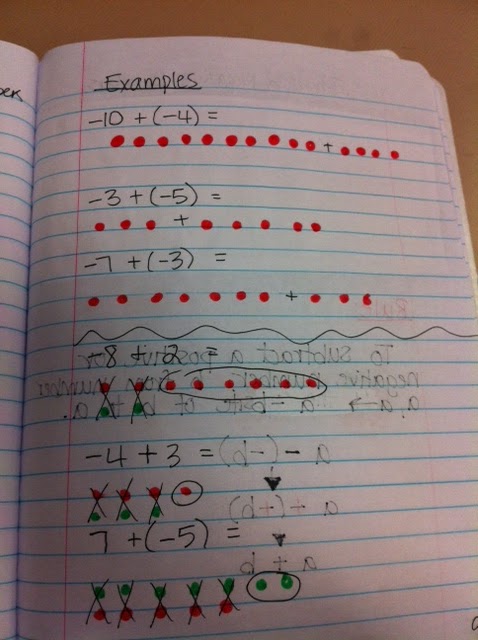 Examples
-10 + (-4) =
+
-3 + (-5) =
+
-7 + (-3) =
+
-8 + 2 =
-4 + 3 =
7 + (-5) =